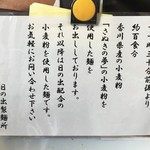 十一時三十分前後より
約百食分
香川県産の小麦粉
「さぬきの夢」の小麦を
使用した麺を
お出ししております。
それ以降は日の出配合の
小麦粉を使用した麺です。
お気軽にお問い合わせ下さい
日の出製麺所